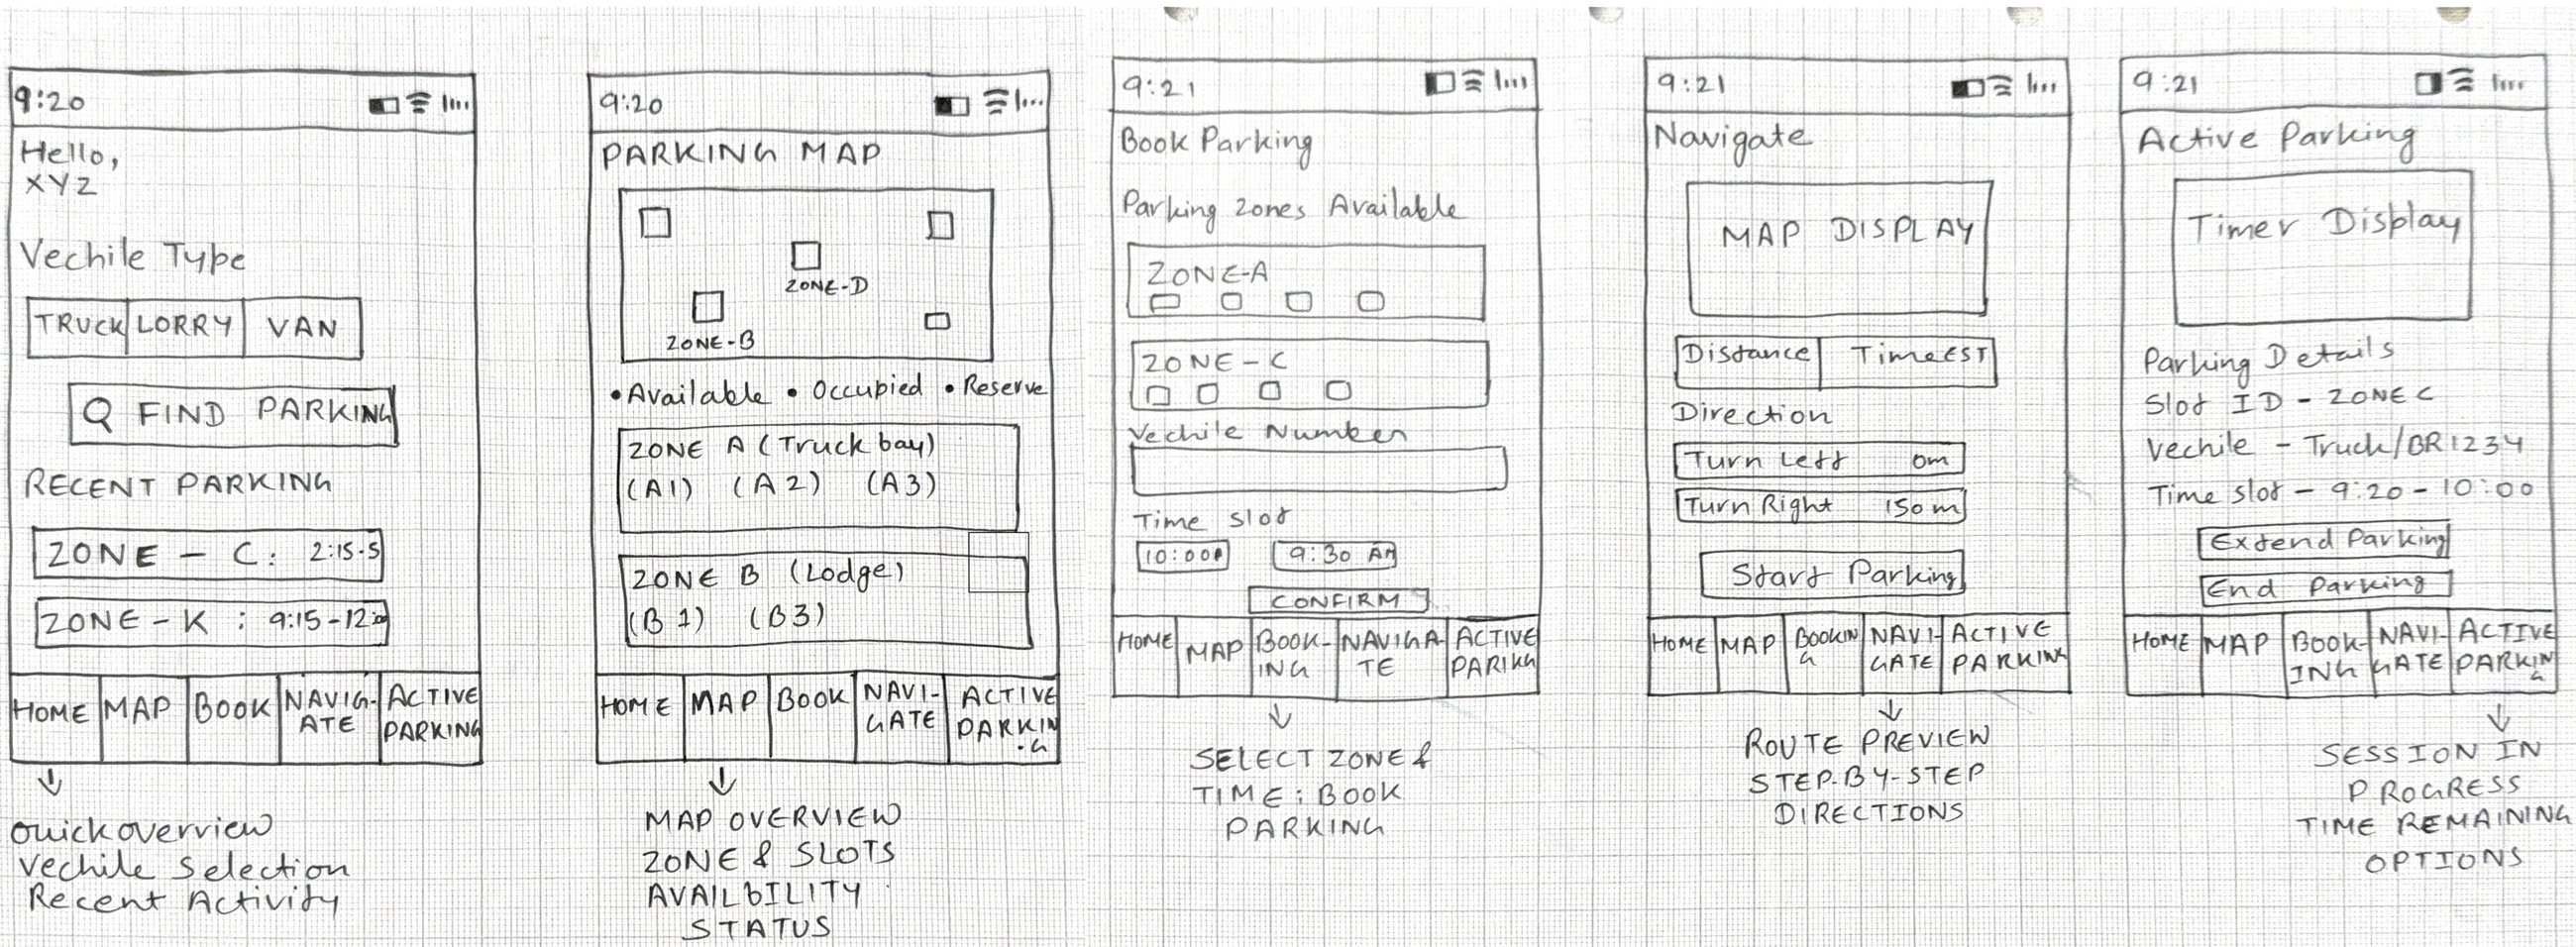 9:20
Hello,
XYZ
Vechile Type
TRUCK LORRY VAN
FIND PARKING
RECENT PARKING
ZONE - C: 2:15-5
ZONE - K : 9:15-12:00
HOME MAP BOOK NAVIG-
ATE ACTIVE
PARKING
Quick overview
Vechile Selection
Recent Activity
9:20
PARKING MAP
ZONE-D
ZONE-B
•Available •Occupied •Reserve
ZONE A (Truck bay)
(A1) (A2) (A3)
ZONE B (Lodge)
(B1) (B3)
HOME MAP BOOK NAVI-
GATE ACTIVE
PARKIN
.G
MAP OVERVIEW
ZONE & SLOTS
AVAILBILITY
STATUS
9:21
Book Parking
Parking Zones Available
ZONE-A
ZONE - C
Vechile Number
Time Slot
10:00 9:30 AM
CONFIRM
HOME MAP BOOK-
ING NAVIGA-
TE ACTIVE
PARIKG
SELECT ZONE &
TIME: BOOK
PARKING
9:21
Navigate
MAP DISPLAY
Distance Time EST
Direction
Turn Left 0m
Turn Right 150m
Start Parking
HOME MAP BOOKIN
G NAVI-
GATE ACTIVE
PARKING
ROUTE PREVIEW
STEP-BY-STEP
DIRECTIONS
9:21
Active Parking
Timer Display
Parking Details
Slot ID - ZONE C
Vechile - Truck/BR1234
Time Slot - 9:20 - 10:00
Extend Parking
End Parking
HOME MAP BOOK-
ING NAVI-
GATE ACTIVE
PARKIN
G
SESSION IN
PROGRESS
TIME REMAINING
OPTIONS